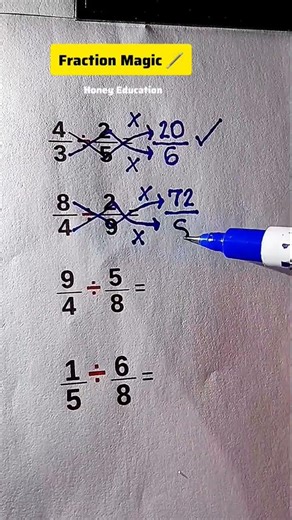 Fraction Magic
Honey Education
4/3 ÷ 2/5 x x 20/6 ✓
8/4 ÷ 2/9 x x 72/
9/4 ÷ 5/8 =
1/5 ÷ 6/8 =